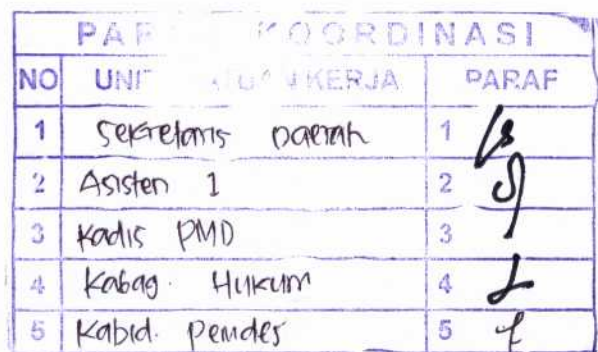 KOORDINASI
NO KERJA PARAF
1 Sekretaris Daerah 1
2 Asisten 1 2
3 Kadis PMD 3
4 Kabag. Hukum 4
5 Kabid. Pemdes 5